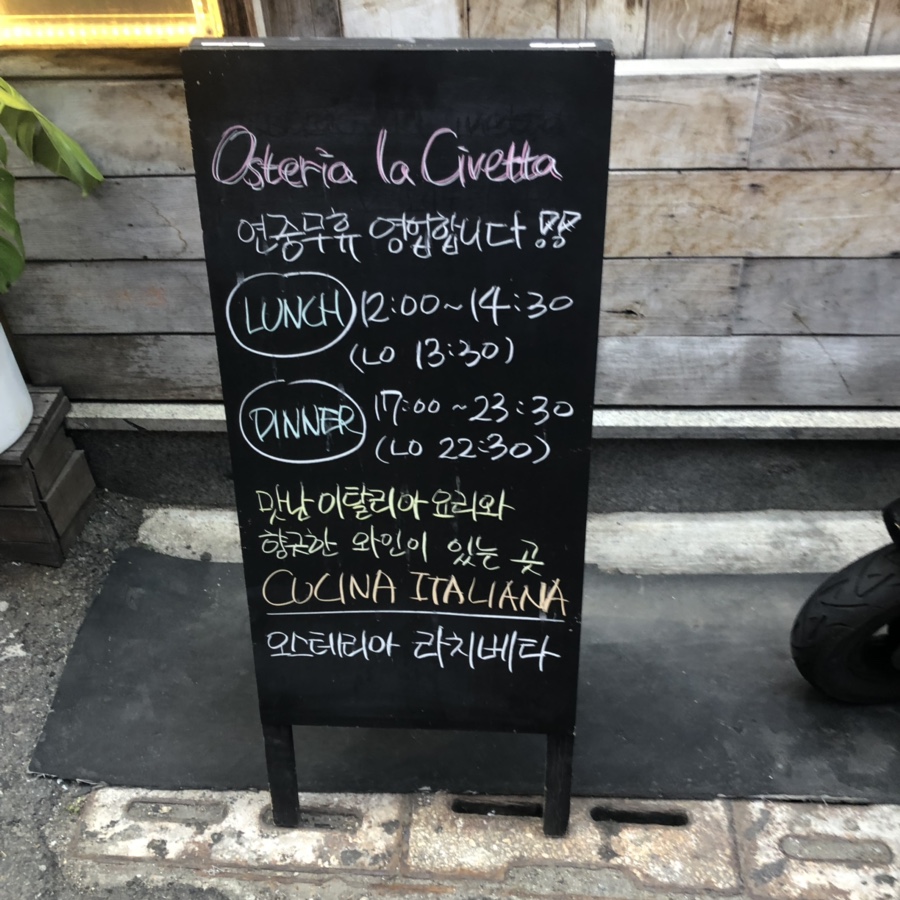 Osteria la Civetta
연중무휴 영업합니다
LUNCH 12:00~14:30
(LO 13:30)
DINNER 17:00~23:30
(LO 22:30)
맛난 이탈리아 요리와
향긋한 와인이 있는 곳
CUCINA ITALIANA
오스테리아 라치베타